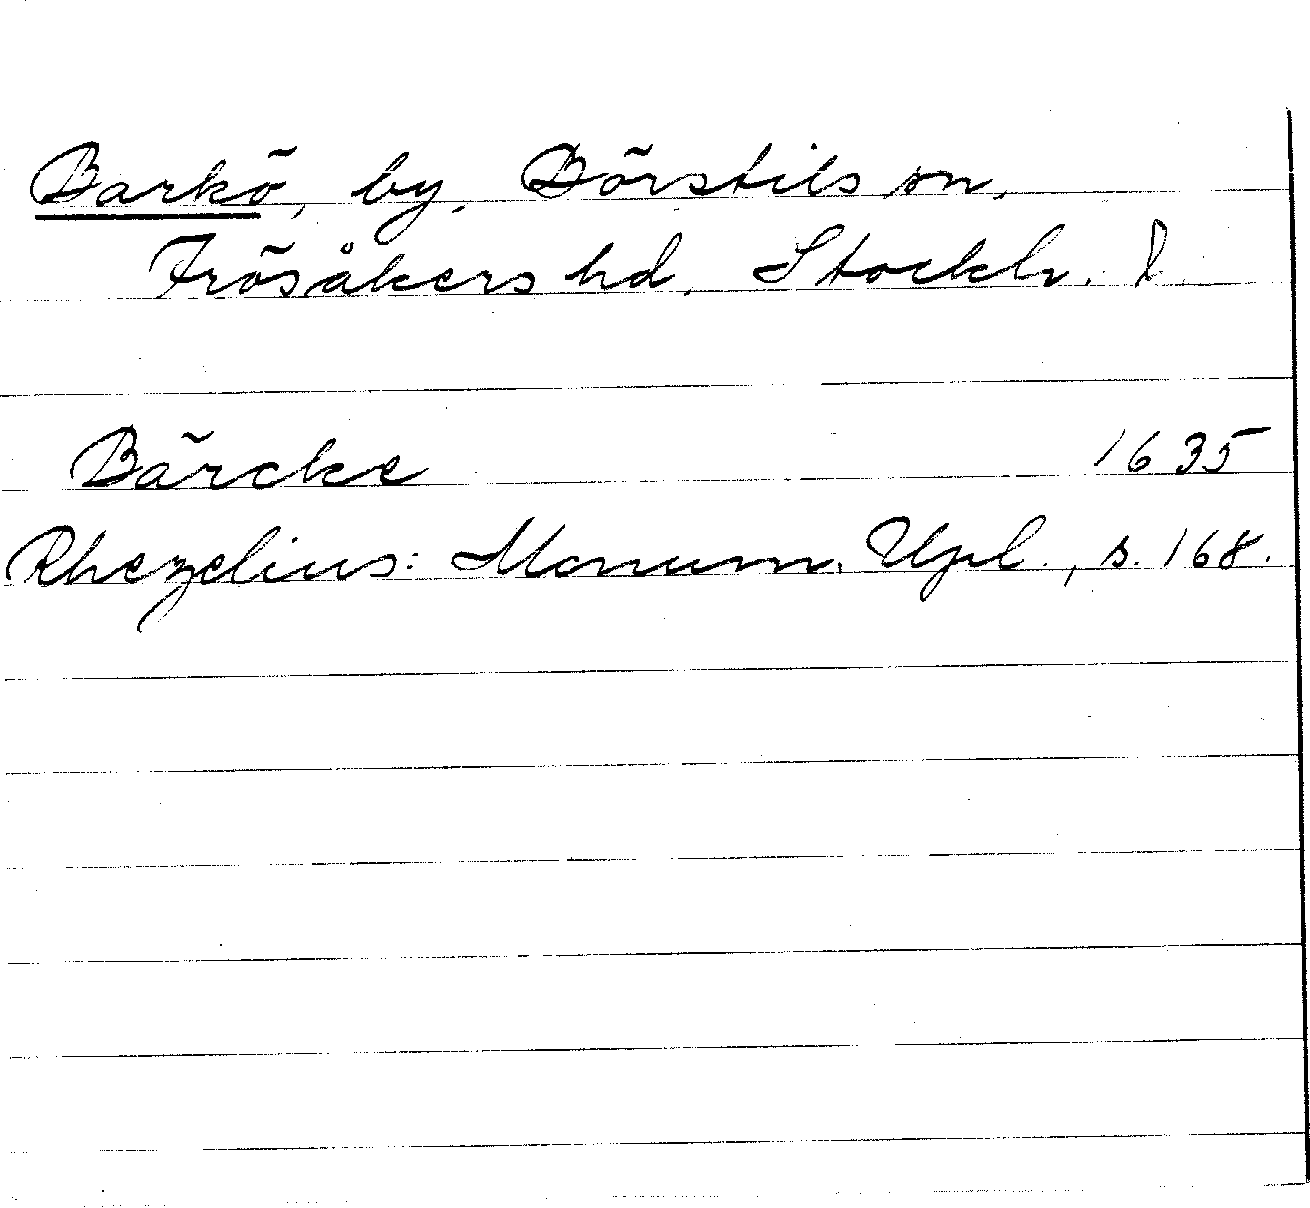 Barkö, by, Börstils sn,
Frösåkers hd. Stockh. l.
Bärcke 1635
Rhezelius: Monum. Upl., s. 168.